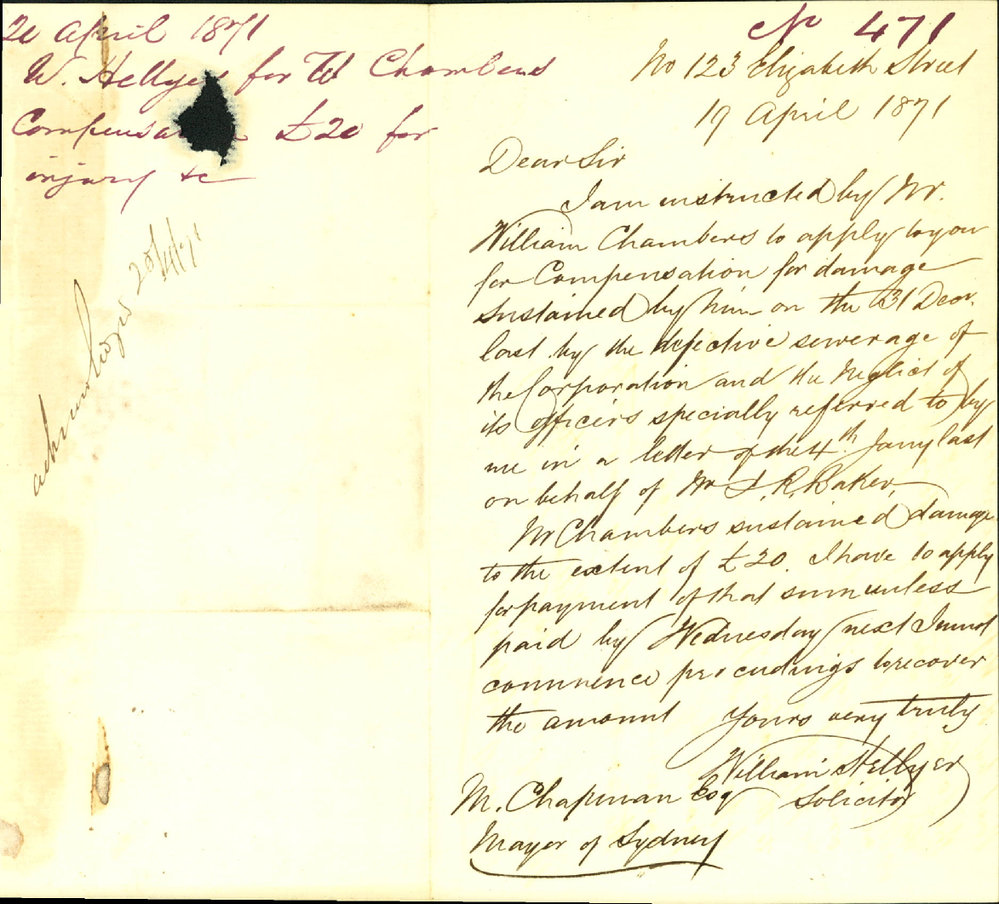 20 April 1871
W. Hellyer for W Chambers
Compensa £20 for
injury &c
acknowledged 20/4/71
No 471
No 123 Elizabeth Street
19 April 1871
Dear Sir
I am instructed by Mr.
William Chambers to apply to you
for Compensation for damage
sustained by him on the 31 Decr.
last by the defective sewerage of
the Corporation and the neglect of
its officers specially referred to by
me in a letter of the 4th Jany last
on behalf of Mr S. R. Baker,
Mr Chambers sustained damage
to the extent of £20. I have to apply
for payment of that sum unless
paid by Wednesday next I must
commence proceedings to recover
the amount Yours very truly
William Hellyer
Solicitor
M. Chapman Esq
Mayor of Sydney